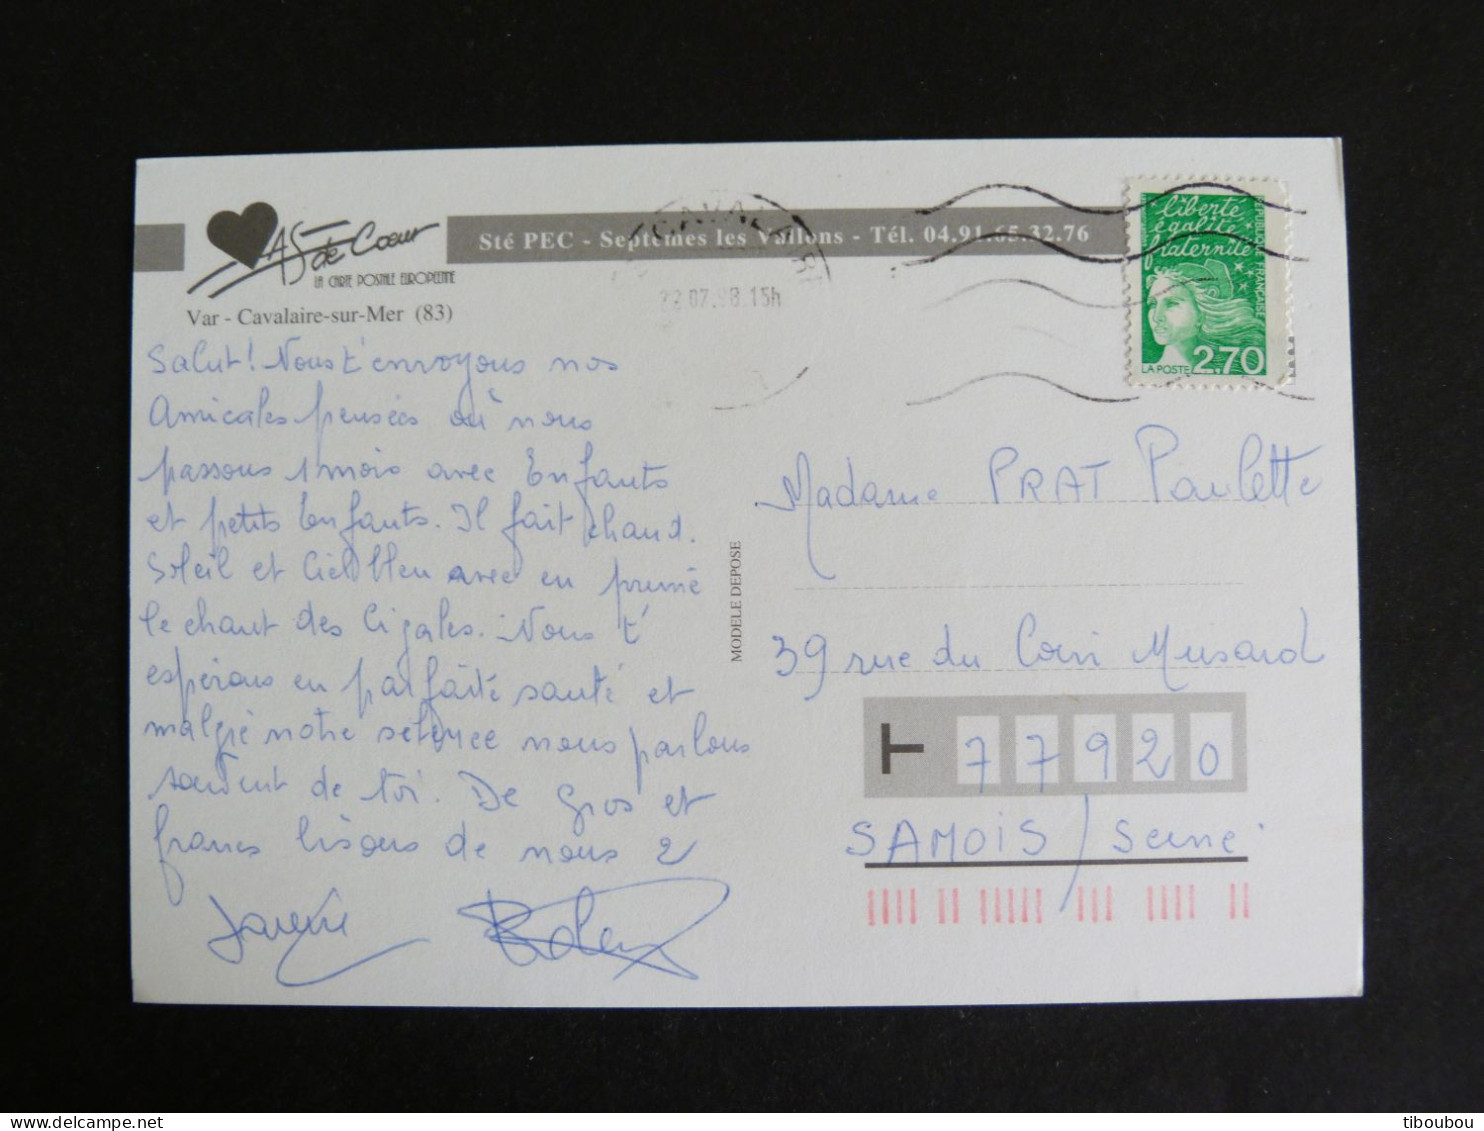 AS de Coeur
LA CARTE POSTALE EUROPEENNE
Sté PEC - Septèmes les Vallons - Tél. 04.91.65.32.76
Var - Cavalaire-sur-Mer (83)
CAVALAIRE
22.07.98.15h
liberté
égalité
fraternité
REPUBLIQUE FRANÇAISE
LA POSTE 2,70
Salut! Nous t'envoyons nos
Amicales pensées où nous
passons 1 mois avec Enfants
et petits Enfants. Il fait chaud.
Soleil et Ciel bleu avec en prime
le chant des Cigales. Nous t'
espérons en parfaite santé et
malgré notre silence nous parlons
souvent de toi. De gros et
francs bisous de nous 2
MODELE DEPOSE
Madame PRAT Paulette
39 rue du Coin Musard
77920
SAMOIS / Seine
tiboubou